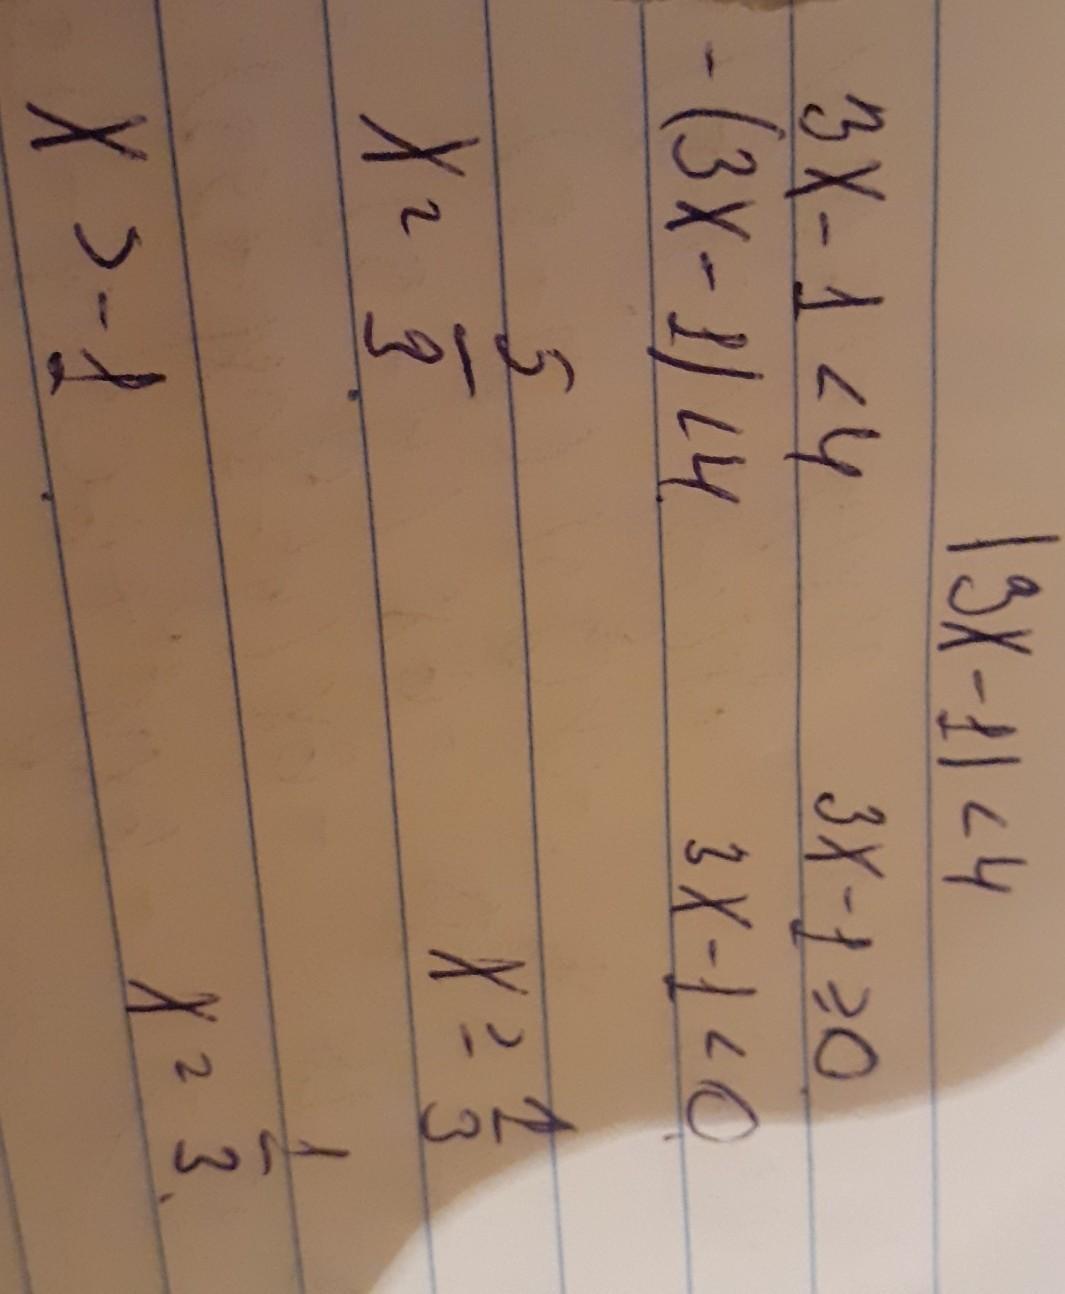 |3x-1|<4
3x-1<4 3x-1≥0
-(3x-1)<4 3x-1<0
x = 5/3 x ≥ 1/3
x > -1 x = 1/3